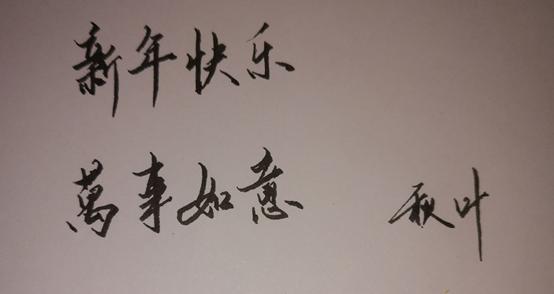 新年快乐
萬事如意
秋叶